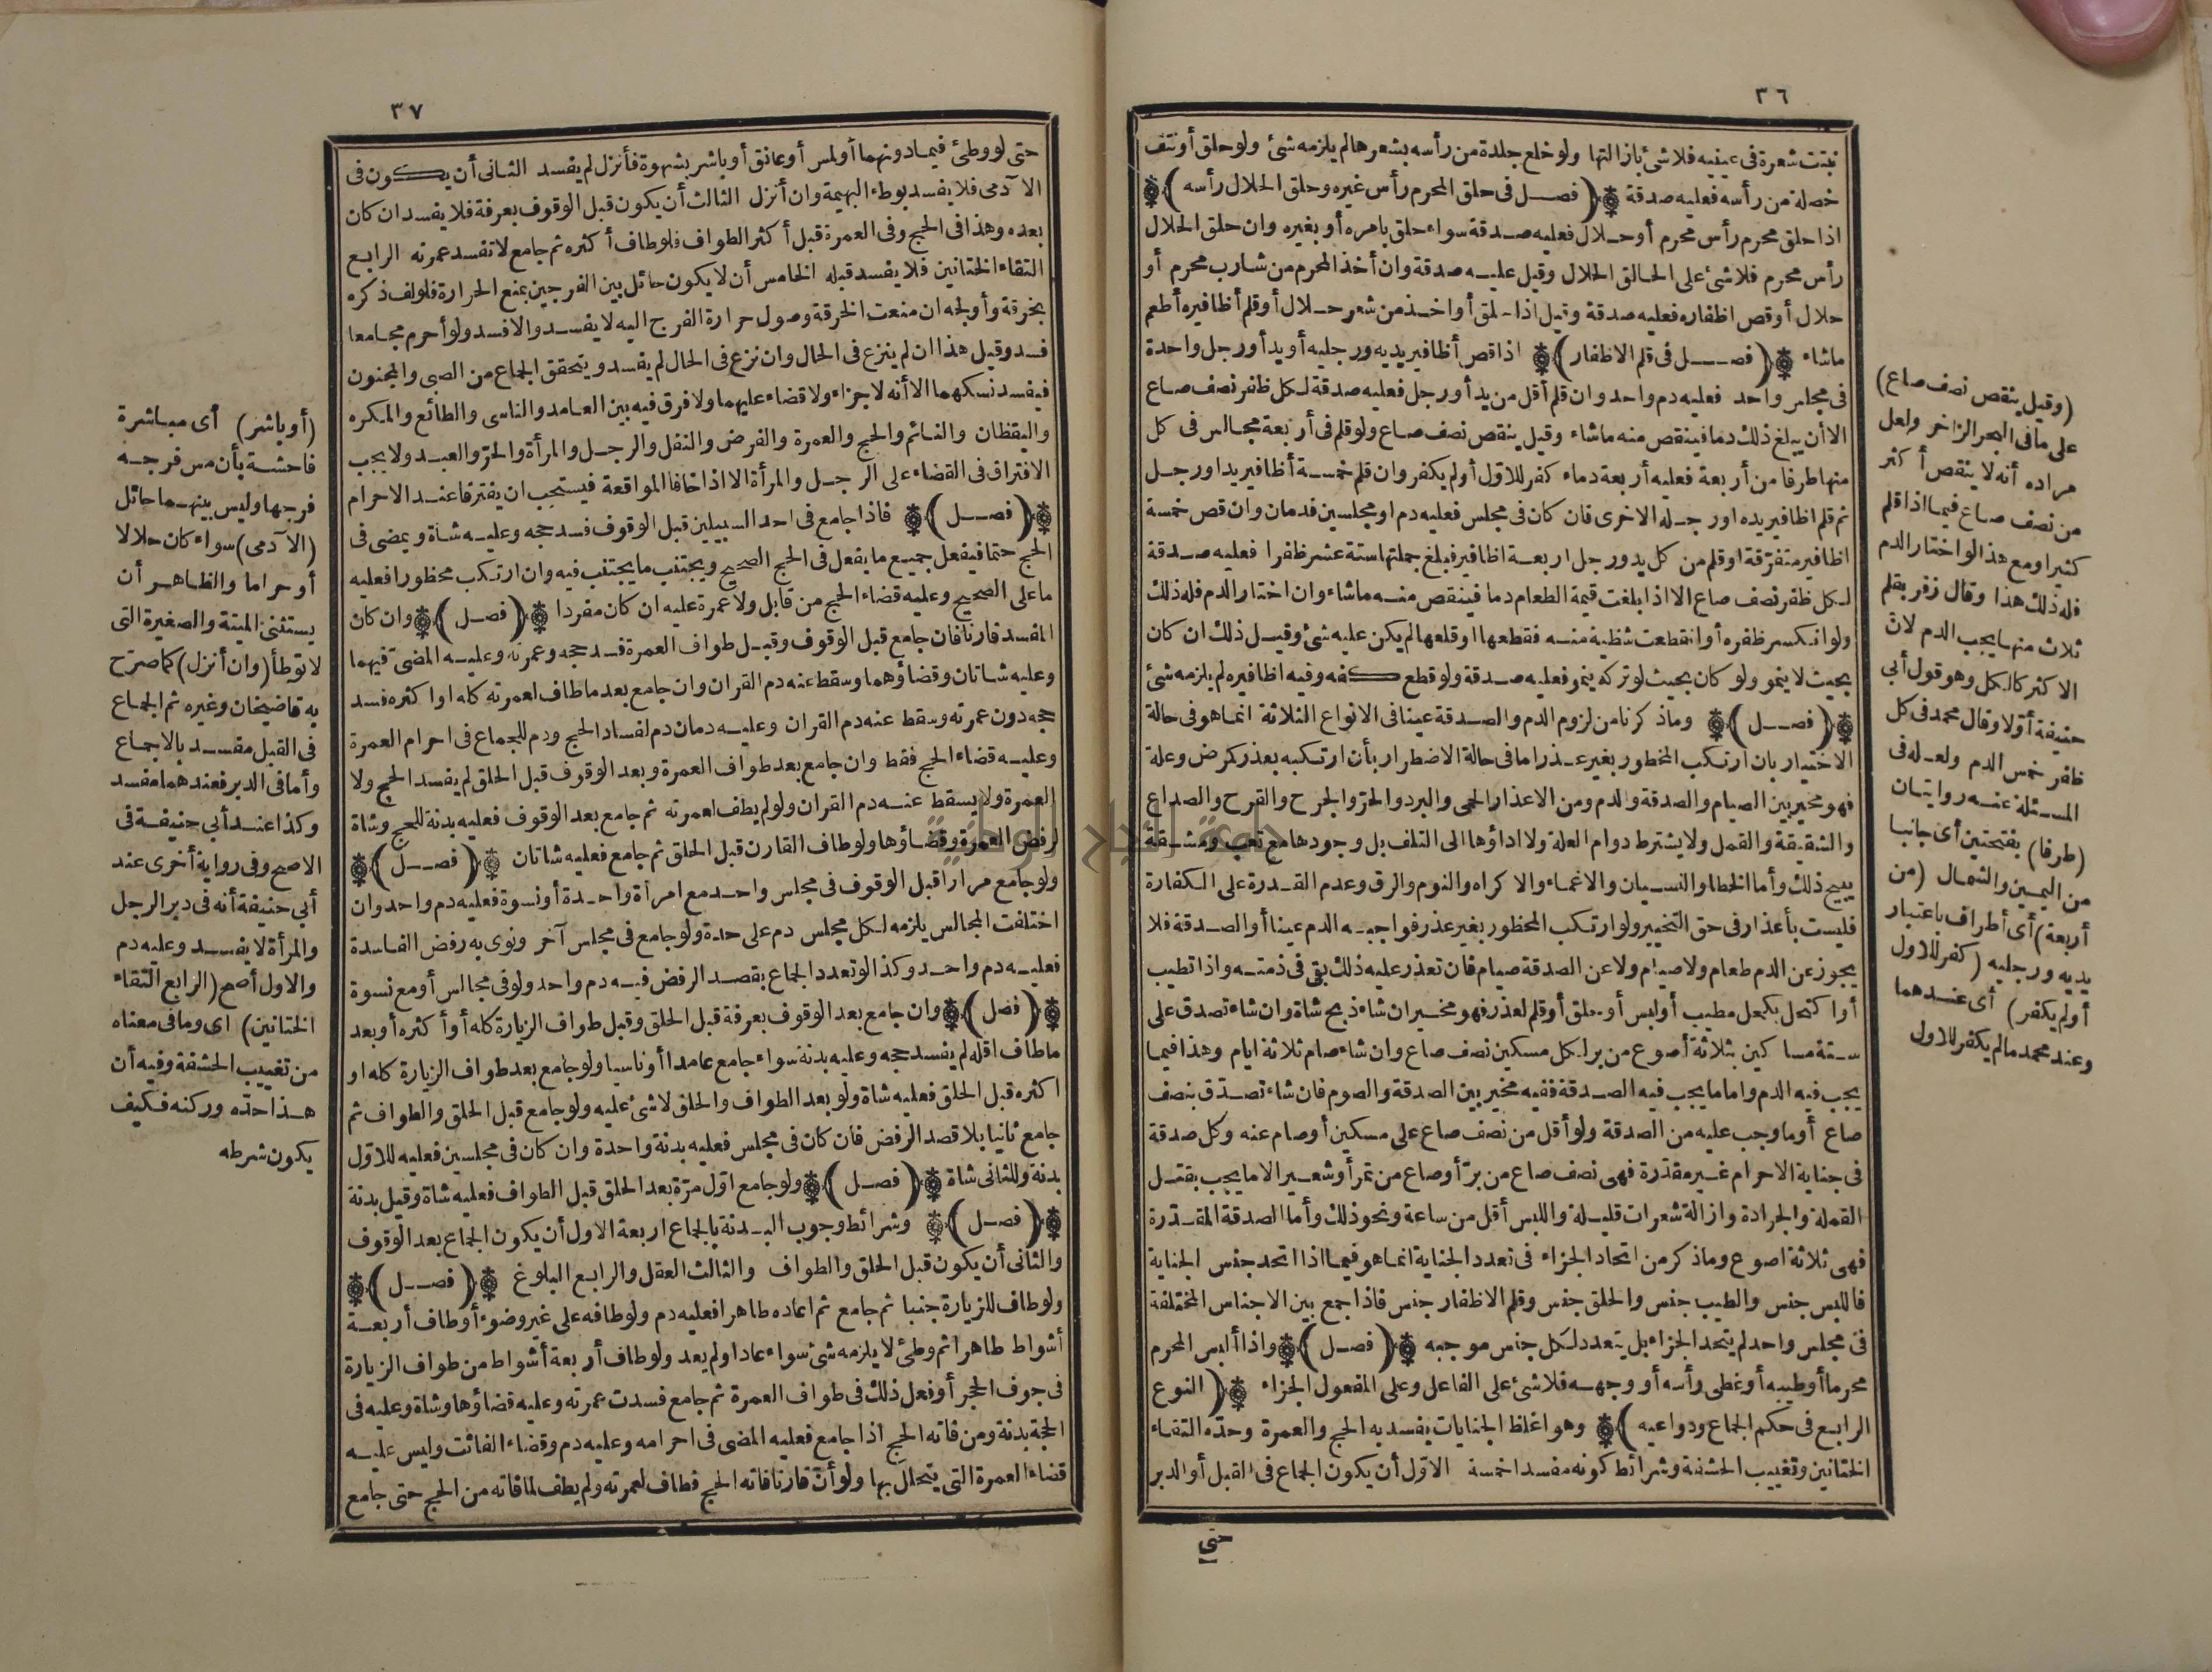 ٣٦
نبتت شعرة فى عينيه فلا شئ بازالتها ولو خلع جلدة من رأسه بشعرها لم يلزمه شئ ولو حلق أو نتف
خصلة من رأسه فعليه صدقة ﴿ فصل فى حلق المحرم رأس غيره وحلق الحلال رأسه ﴾
اذا حلق محرم رأس محرم أو حلال فعليه صدقة سواء حلق بامره أو بغيره وان حلق الحلال
رأس محرم فلا شئ على الحالق الحلال وقيل عليه صدقة وان أخذ المحرم من شارب محرم أو
حلال أو قص اظفاره فعليه صدقة وقيل اذا حلق أو اخذ من شعر حلال أو قلم أظافيره أطعم
ماشاء ﴿ فصل فى قلم الاظفار ﴾ اذا قص أظافير يديه ورجليه أو يد أو رجل واحدة
فى مجلس واحد فعليه دم واحد وان قلم أقل من يد أو رجل فعليه صدقة لكل ظفر نصف صاع
الا أن يبلغ ذلك دما فينقص منه ماشاء وقيل ينقص نصف صاع ولو قلم فى أربعة مجالس فى كل
منها طرفا من أربعة فعليه أربعة دماء كفر للاول أو لم يكفر وان قلم خمسة أظافير يد او رجل
ثم قلم اظافير يده او رجله الاخرى فان كان فى مجلس فعليه دم او مجلسين فدمان وان قص خمسة
اظافير متفرقة او قلم من كل يد ورجل اربعة اظافير فبلغ جملتها ستة عشر ظفرا فعليه صدقة
لكل ظفر نصف صاع الا اذا بلغت قيمة الطعام دما فينقص منه ماشاء وان اختار الدم فله ذلك
ولو انكسر ظفره أو انقطعت شظيه منه فقطعها او قلعها لم يكن عليه شئ وقيل ذلك ان كان
بحيث لا ينمو ولو كان بحيث لو تركه ينمو فعليه صدقة ولو قطع كفه وفيه اظافيره لم يلزمه شئ
﴿ فصل ﴾ وما ذكرنا من لزوم الدم والصدقة عينا فى الانواع الثلاثة انما هو فى حالة
الاختيار بان ارتكب المحظور بغير عذر اما فى حالة الاضطرار بأن ارتكبه بعذر كمرض وعلة
فهو مخير بين الصيام والصدقة والدم ومن الاعذار الحمى والبرد والحر والجرح والقرح والصداع
والشقيقة والقمل ولا يشترط دوام العلة ولا اداؤها الى التلف بل وجودها مع تعب ومشقة
يبيح ذلك وأما الخطا والنسيان والاغماء والاكراه والنوم والرق وعدم القدرة على الكفارة
فليست بأعذار فى حق التخيير ولو ارتكب المحظور بغير عذر فواجبه الدم عينا أو الصدقة فلا
يجوز عن الدم طعام ولا صيام ولا عن الصدقة صيام فان تعذر عليه ذلك بقى فى ذمته واذا تطيب
أو اكتحل بكحل مطيب أو لبس أو حلق أو قلم لعذر فهو مخير ان شاء ذبح شاة وان شاء تصدق على
ستة مساكين بثلاثة أصوع من بر لكل مسكين نصف صاع وان شاء صام ثلاثة ايام وهذا فيما
يجب فيه الدم واما ما يجب فيه الصدقة ففيه مخير بين الصدقة والصوم فان شاء تصدق بنصف
صاع أو ما وجب عليه من الصدقة ولو أقل من نصف صاع على مسكين أو صام عنه وكل صدقة
فى جناية الاحرام غير مقدرة فهى نصف صاع من بر أو صاع من تمر أو شعير الا ما يجب بقتل
القملة والجرادة وازالة شعرات قليلة واللبس أقل من ساعة ونحو ذلك وأما الصدقة المقدرة
فهى ثلاثة اصوع وما ذكر من اتحاد الجزاء فى تعدد الجناية انما هو فيما اذا اتحد جنس الجناية
فاللبس جنس والطيب جنس والحلق جنس وقلم الاظفار جنس فاذا جمع بين الاجناس المختلفة
فى مجلس واحد لم يتحد الجزاء بل يتعدد لكل جنس موجبه ﴿ فصل ﴾ واذا ألبس المحرم
محرما أو طيبه أو غطى رأسه أو وجهه فلا شئ على الفاعل وعلى المفعول الجزاء ﴿ النوع
الرابع فى حكم الجماع ودواعيه ﴾ وهو اغلظ الجنايات يفسد به الحج والعمرة وحده التقاء
الختانين وتغييب الحشفة وشرائط كونه مفسدا خمسة الاول أن يكون الجماع فى القبل أو الدبر
حتى
(وقيل ينقص نصف صاع)
على ما فى البحر الزاخر ولعل
مراده أنه لا ينقص أكثر
من نصف صاع فيما اذا قلم
كثيرا ومع هذا لو اختار الدم
فله ذلك هذا وقال زفر بقلم
ثلاث منها يجب الدم لان
الاكثر كالكل وهو قول أبى
حنيفة أولا وقال محمد فى كل
ظفر خمس الدم ولعله فى
المسئلة عنه روايتان
(طرفا) بفتحتين أى جانبا
من اليمين والشمال (من
أربعة) أى أطراف باعتبار
يديه ورجليه (كفر للاول
أو لم يكفر) أى عندهما
وعند محمد ما لم يكفر للاول
٣٧
حتى لو وطئ فيما دونهما أو لمس أو عانق أو باشر بشهوة فأنزل لم يفسد الثانى أن يكون فى
الآدمى فلا يفسد بوطء البهيمة وان أنزل الثالث أن يكون قبل الوقوف بعرفة فلا يفسد ان كان
بعده وهذا فى الحج وفى العمرة قبل أكثر الطواف فلو طاف أكثره ثم جامع لا تفسد عمرته الرابع
التقاء الختانين فلا يفسد قبله الخامس أن لا يكون حائل بين الفرجين يمنع الحرارة فلو لف ذكره
بخرقة وأولجه ان منعت الخرقة وصول حرارة الفرج اليه لا يفسد والا فسد ولو أحرم مجامعا
فسد وقيل هذا ان لم ينزع فى الحال وان نزع فى الحال لم يفسد ويتحقق الجماع من الصبى والمجنون
فيفسد نسكهما الا أنه لا جزاء ولا قضاء عليهما ولا فرق فيه بين العامد والناسى والطائع والمكره
واليقظان والنائم والحج والعمرة والفرض والنفل والرجل والمرأة والحر والعبد ولا يجب
الافتراق فى القضاء على الرجل والمرأة الا اذا خافا المواقعة فيستحب ان يفترقا عند الاحرام
﴿ فصل ﴾ فاذا جامع فى احد السبيلين قبل الوقوف فسد حجه وعليه شاة ويمضى فى
الحج حتما فيفعل جميع ما يفعل فى الحج الصحيح ويجتنب ما يجتنب فيه وان ارتكب محظورا فعليه
ما على الصحيح وعليه قضاء الحج من قابل ولا عمرة عليه ان كان مفردا ﴿ فصل ﴾ وان كان
المفسد قارنا فان جامع قبل الوقوف وقبل طواف العمرة فسد حجه وعمرته وعليه المضى فيهما
وعليه شاتان وقضاؤهما وسقط عنه دم القران وان جامع بعد ما طاف لعمرته كله او اكثره فسد
حجه دون عمرته وسقط عنه دم القران وعليه دمان دم لفساد الحج ودم للجماع فى احرام العمرة
وعليه قضاء الحج فقط وان جامع بعد طواف العمرة وبعد الوقوف قبل الحلق لم يفسد الحج ولا
العمرة ولا يسقط عنه دم القران ولو لم يطف لعمرته ثم جامع بعد الوقوف فعليه بدنة للحج وشاة
لرفض العمرة وقضاؤها ولو طاف القارن قبل الحلق ثم جامع فعليه شاتان ﴿ فصل ﴾
ولو جامع مرارا قبل الوقوف فى مجلس واحد مع امرأة واحدة أو نسوة فعليه دم واحد وان
اختلفت المجالس يلزمه لكل مجلس دم على حدة ولو جامع فى مجلس آخر ونوى به رفض الفاسدة
فعليه دم واحد وكذا لو تعدد الجماع بقصد الرفض فيه دم واحد ولو فى مجالس أو مع نسوة
﴿ فصل ﴾ وان جامع بعد الوقوف بعرفة قبل الحلق وقبل طواف الزيارة كله أو أكثره أو بعد
ما طاف اقله لم يفسد حجه وعليه بدنة سواء جامع عامدا أو ناسيا ولو جامع بعد طواف الزيارة كله او
اكثره قبل الحلق فعليه شاة ولو بعد الطواف والحلق لا شئ عليه ولو جامع قبل الحلق والطواف ثم
جامع ثانيا بلا قصد الرفض فان كان فى مجلس فعليه بدنة واحدة وان كان فى مجلسين فعليه للاول
بدنة وللثانى شاة ﴿ فصل ﴾ ولو جامع اول مرة بعد الحلق قبل الطواف فعليه شاة وقيل بدنة
﴿ فصل ﴾ وشرائط وجوب البدنة بالجماع اربعة الاول أن يكون الجماع بعد الوقوف
والثانى أن يكون قبل الحلق والطواف والثالث العقل والرابع البلوغ ﴿ فصل ﴾
ولو طاف للزيارة جنبا ثم جامع ثم اعاده طاهرا فعليه دم ولو طافه على غير وضوء أو طاف أربعة
أشواط طاهرا ثم وطئ لا يلزمه شئ سواء عادا ولم يعد ولو طاف أربعة أشواط من طواف الزيارة
فى جوف الحجر أو فعل ذلك فى طواف العمرة ثم جامع فسدت عمرته وعليه قضاؤها وشاة وعليه فى
الحجة بدنة ومن فاته الحج اذا جامع فعليه المضى فى احرامه وعليه دم وقضاء الفائت وليس عليه
قضاء العمرة التى يتحلل بها ولو أن قارنا فاته الحج فطاف لعمرته ولم يطف لما فاته من الحج حتى جامع
(أو باشر) أى مباشرة
فاحشة بأن مس فرجه
فرجها وليس بينهما حائل
(الآدمى) سواء كان حلالا
أو حراما والظاهر أن
يستثنى الميتة والصغيرة التى
لا توطأ (وان أنزل) كما صرح
به قاضيخان وغيره ثم الجماع
فى القبل مفسد بالاجماع
وأما فى الدبر فعندهما مفسد
وكذا عند أبى حنيفة فى
الاصح وفى رواية أخرى عند
أبى حنيفة أنه فى دبر الرجل
والمرأة لا يفسد وعليه دم
والاول أصح (الرابع التقاء
الختانين) اى وما فى معناه
من تغييب الحشفة وفيه أن
هذا حده وركنه فكيف
يكون شرطه